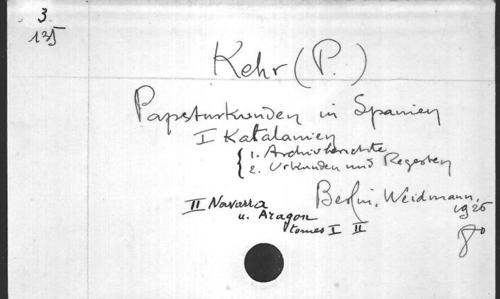 3
135
Kehr (P.)
Papsturkunden in Spanien
I Katalanien
1. Archivberichte
2. Urkunden und Regesten
Berlin, Weidmann,
1926
II Navarra
u. Aragon
tomes I II
8°